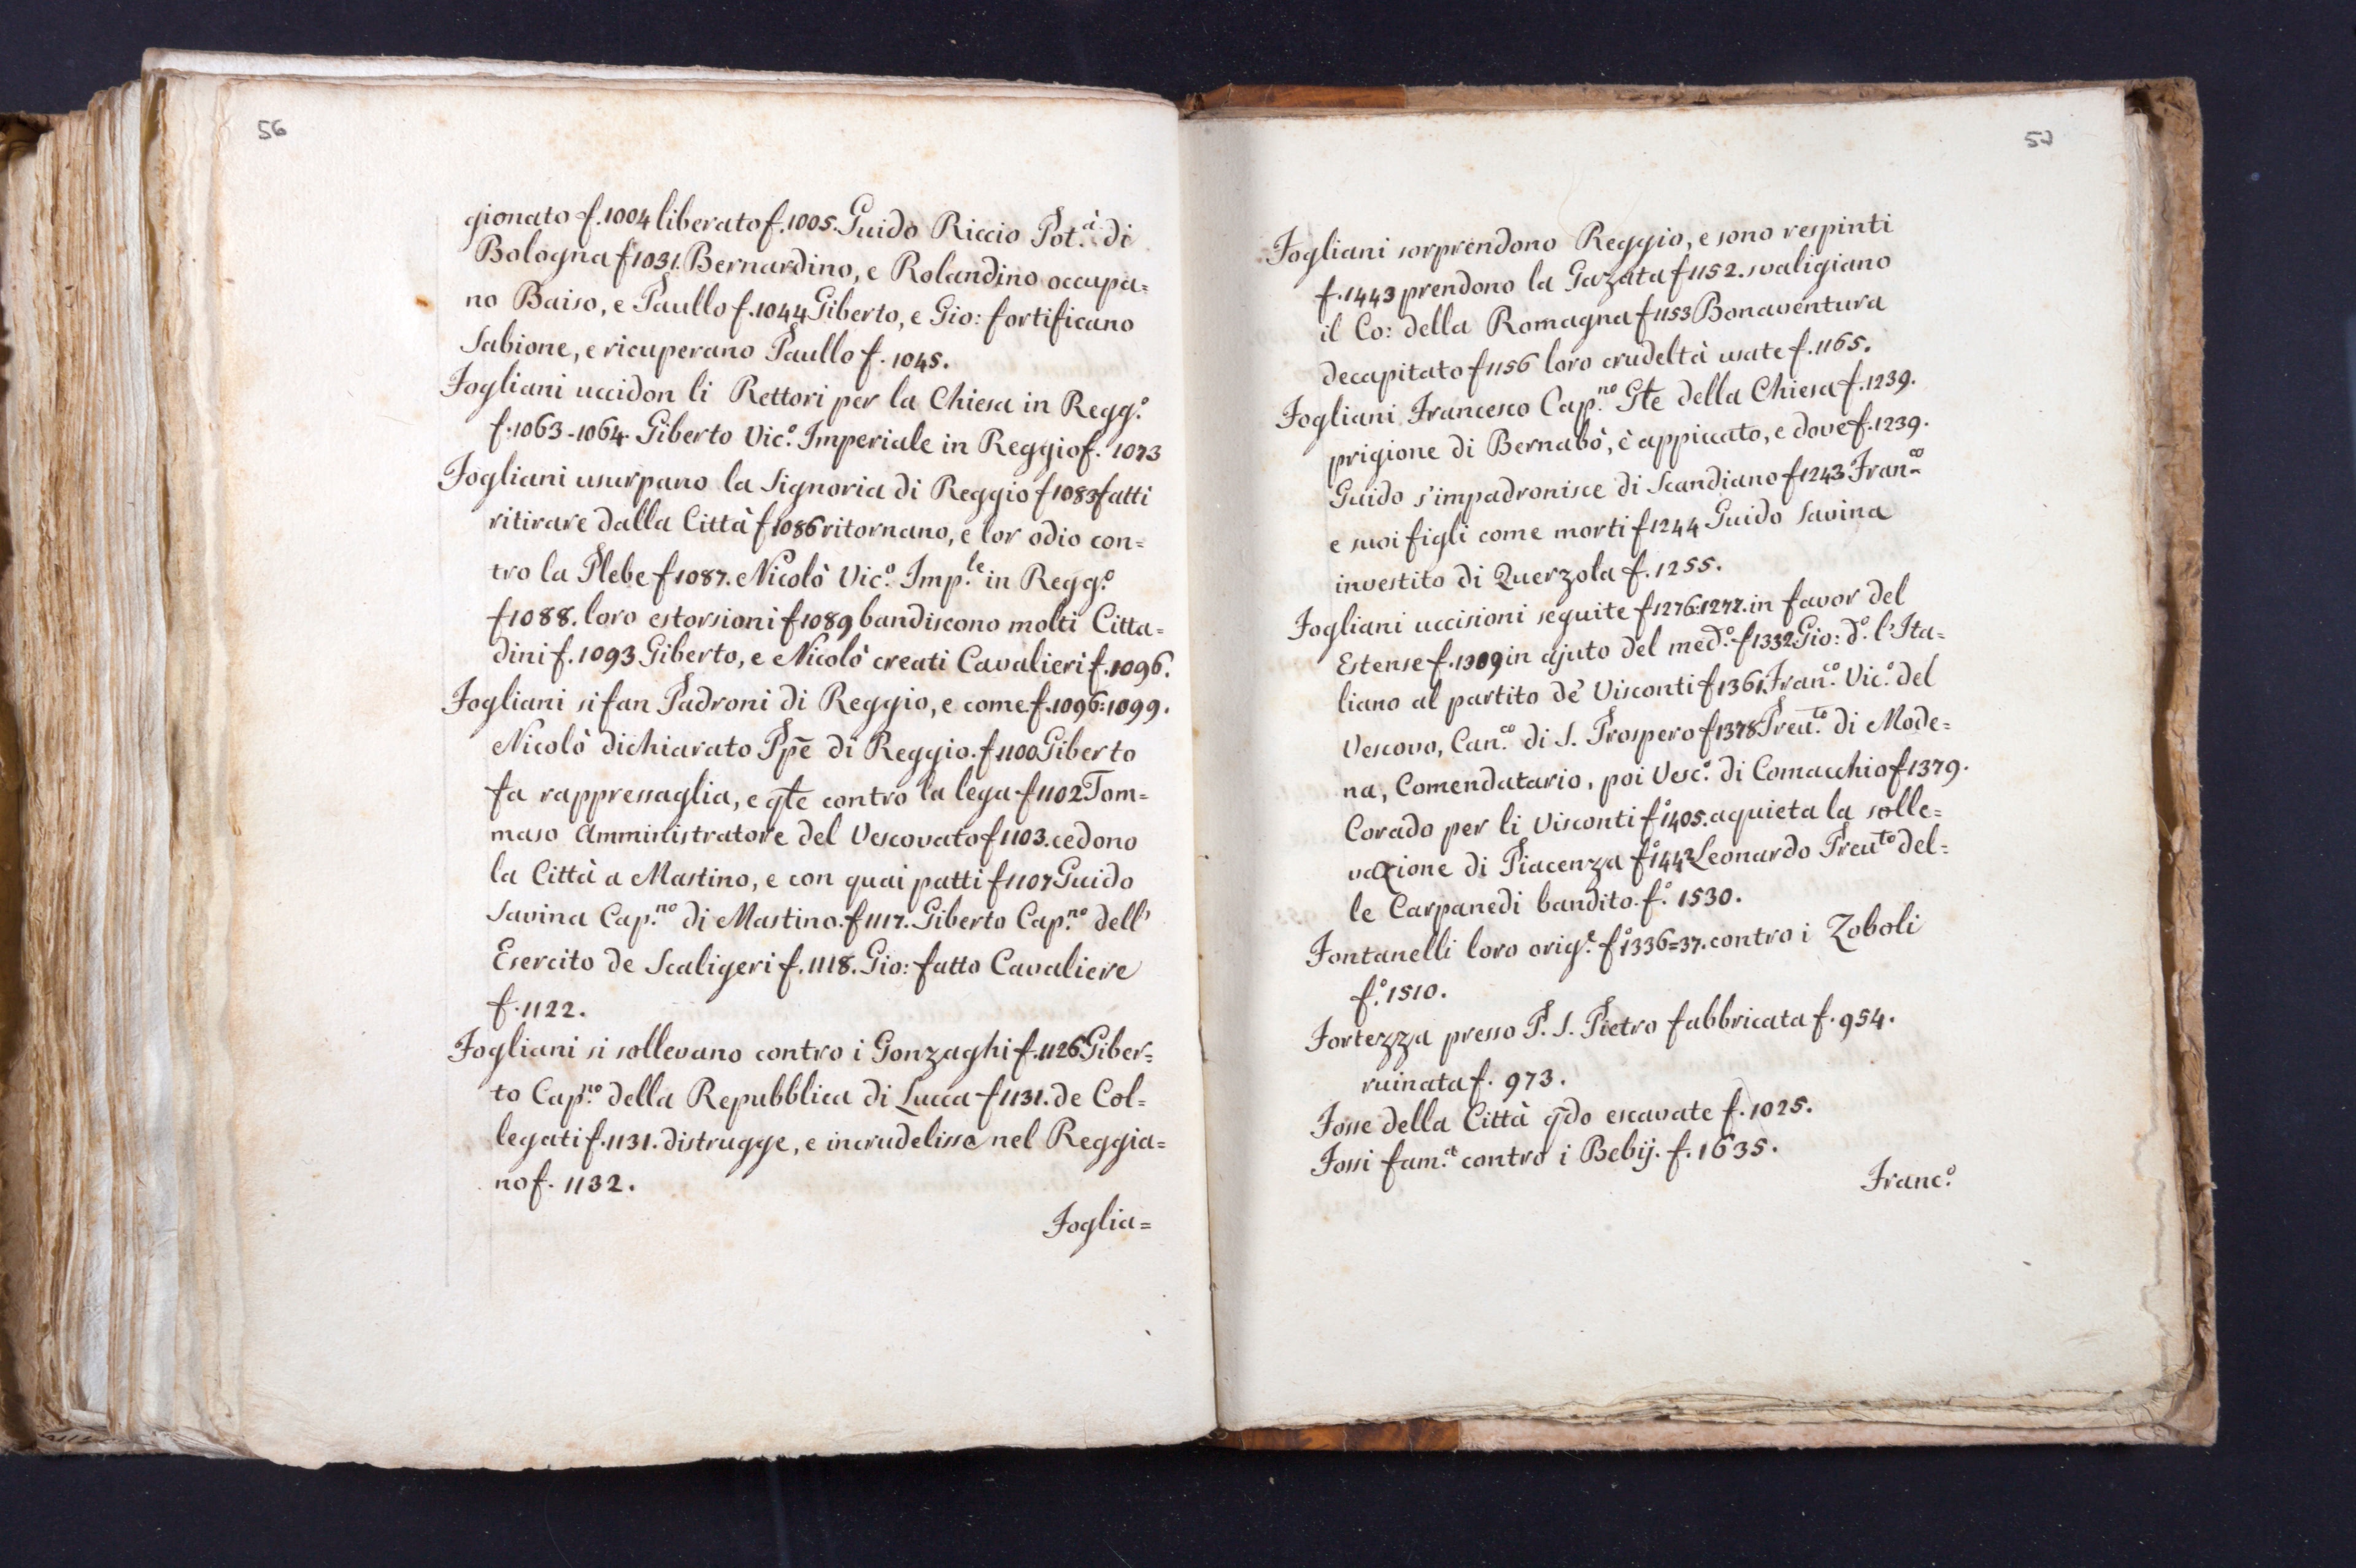 56
gionato f. 1004 liberato f. 1005. Guido Riccio Pot.à di
Bologna f 1031. Bernardino, e Rolandino occupa=
no Baiso, e Paullo f. 1044 Giberto, e Gio: fortificano
Sabione, e ricuperano Paullo f. 1045.
Fogliani uccidon li Rettori per la Chiesa in Regg.o
f. 1063-1064. Giberto Vic.o Imperiale in Reggio f. 1073
Fogliani usurpano la Signoria di Reggio f 1083 fatti
ritirare dalla Città f 1086 ritornano, e lor odio con=
tro la Plebe f 1087. Nicolò Vic.o Imp.le in Regg.o
f 1088. loro estorsioni f 1089 bandiscono molti Citta=
dini f. 1093 Giberto, e Nicolò creati Cavalieri f. 1096.
Fogliani si fan Padroni di Reggio, e come f. 1096:1099.
Nicolò dichiarato Ppe di Reggio. f 1100 Giberto
fa rappressaglia, e qte contro la lega f 1102 Tom=
maso Amministratore del Vescovato f 1103. cedono
la Città a Mastino, e con quai patti f 1107 Guido
Savina Cap.no di Mastino. f 1117. Giberto Cap.no dell'
Esercito de Scaligeri f. 1118. Gio: fatto Cavaliere
f. 1122.
Fogliani si sollevano contro i Gonzaghi f. 1126 Giber=
to Cap.no della Repubblica di Lucca f 1131. de Col=
legati f. 1131. distrugge, e incrudelisse nel Reggia=
no f. 1132.
Foglia=
57
Fogliani sorprendono Reggio, e sono respinti
f. 1443 prendono la Gazata f 1152. svaligiano
il Co: della Romagna f 1153 Bonaventura
decapitato f 1156 loro crudeltà usate f. 1165.
Fogliani Francesco Cap.no Gte della Chiesa f. 1239.
prigione di Bernabò, è appiccato, e dove f. 1239.
Guido s'impadronisce di Scandiano f 1243 Fran.co
e suoi figli come morti f 1244 Guido Savina
investito di Querzola f. 1255.
Fogliani uccisioni seguite f 1276:1277. in favor del
Estense f. 1309 in ajuto del med.o f 1332 Gio: d.o l'Ita=
liano al partito de' Visconti f 1361. Fran.co Vic.o del
Vescovo, Can.co di S. Prospero f 1378 Preu.to di Mode=
na, Comendatario, poi Vesc.o di Comacchio f 1379.
Corado per li Visconti f.o 1405. aquieta la solle=
vazione di Piacenza f.o 1442 Leonardo Preu.to del=
le Carpanedi bandito. f.o 1530.
Fontanelli loro orig.e f.o 1336=37. contro i Zoboli
f.o 1510.
Fortezza presso P. S. Pietro fabbricata f. 954.
ruinata f. 973.
Fosse della Città qdo escavate f. 1025.
Fossi fam.a contro i Bebij. f. 1635.
Franc.o